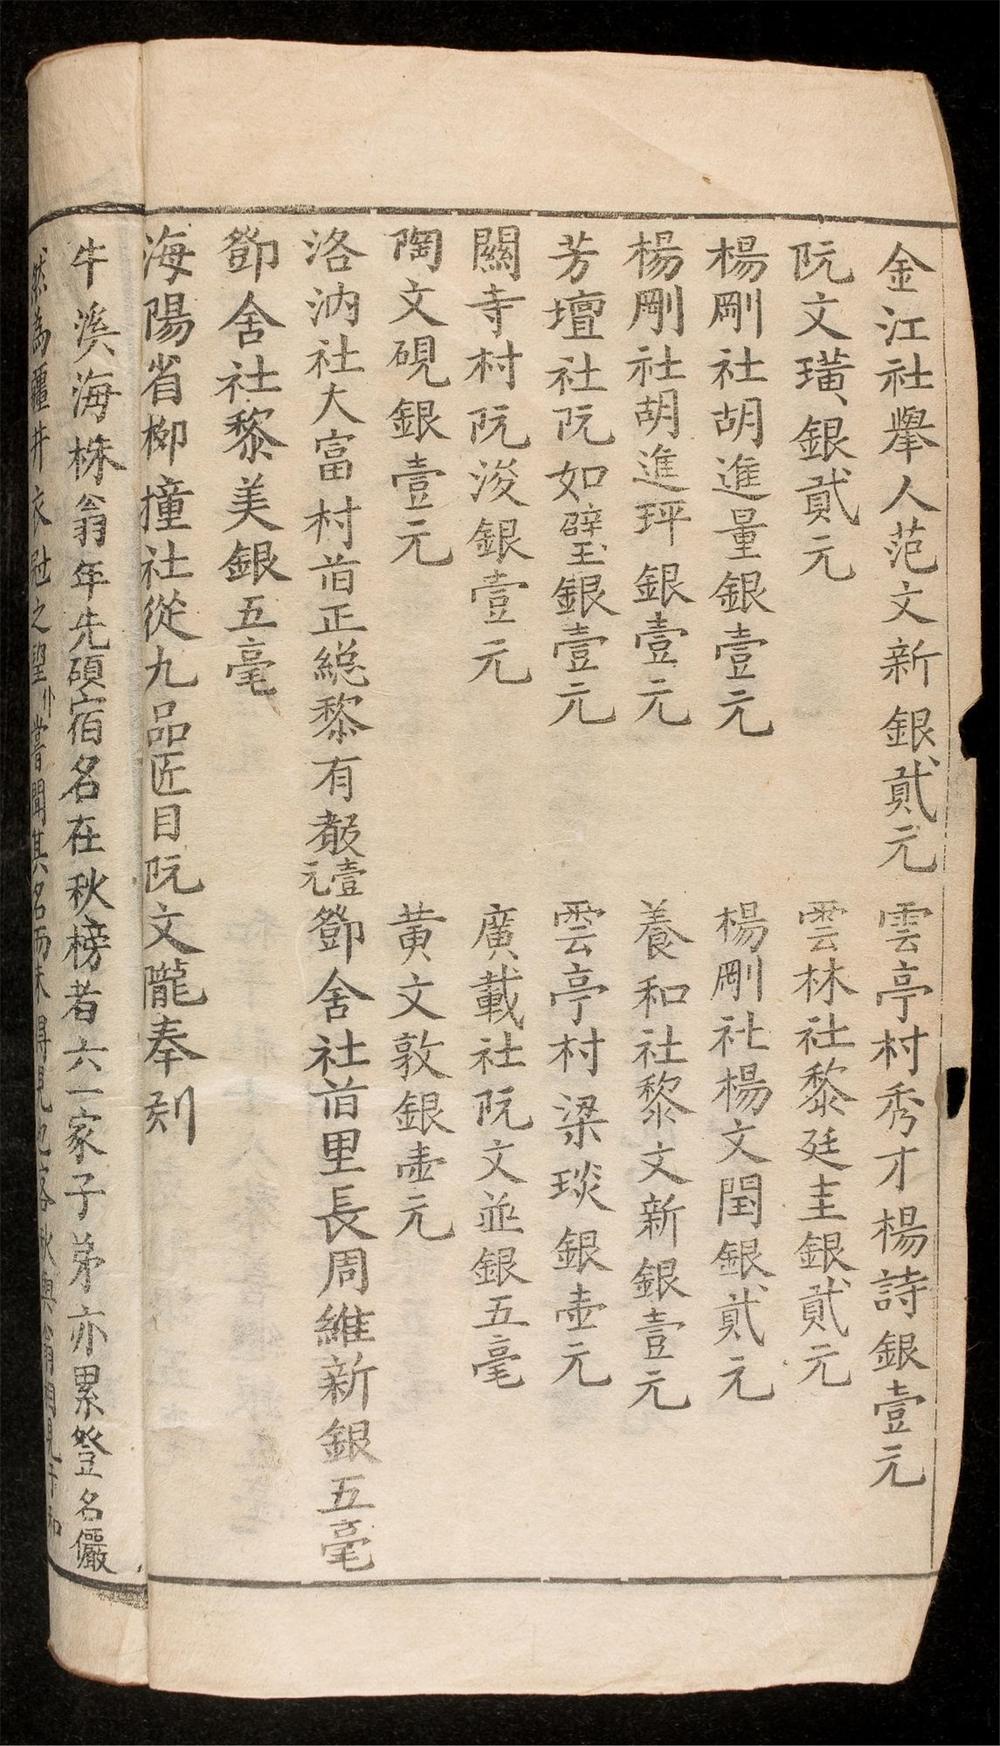 金江社舉人范文新銀貳元 雲亭村秀才楊詩銀壹元
阮文璜銀貳元 雲林社黎廷圭銀貳元
楊剛社胡進量銀壹元 楊剛社楊文閏銀貳元
楊剛社胡進玶銀壹元 養和社黎文新銀壹元
芳壇社阮如璧銀壹元 雲亭村梁琰銀壹元
關寺村阮浚銀壹元 廣載社阮文並銀五毫
陶文硯銀壹元 黃文敦銀壹元
洛汭社大富村首正総黎有㲄壹元 鄧舍社首里長周維新銀五毫
鄧舍社黎美銀五毫
海陽省柳撞社從九品匠目阮文隴奉刻
牛溪海株翁年先碩宿名在秋榜者六一家子弟亦累登名儼
然為疆井衣冠之望 嘗聞其名而未得見也